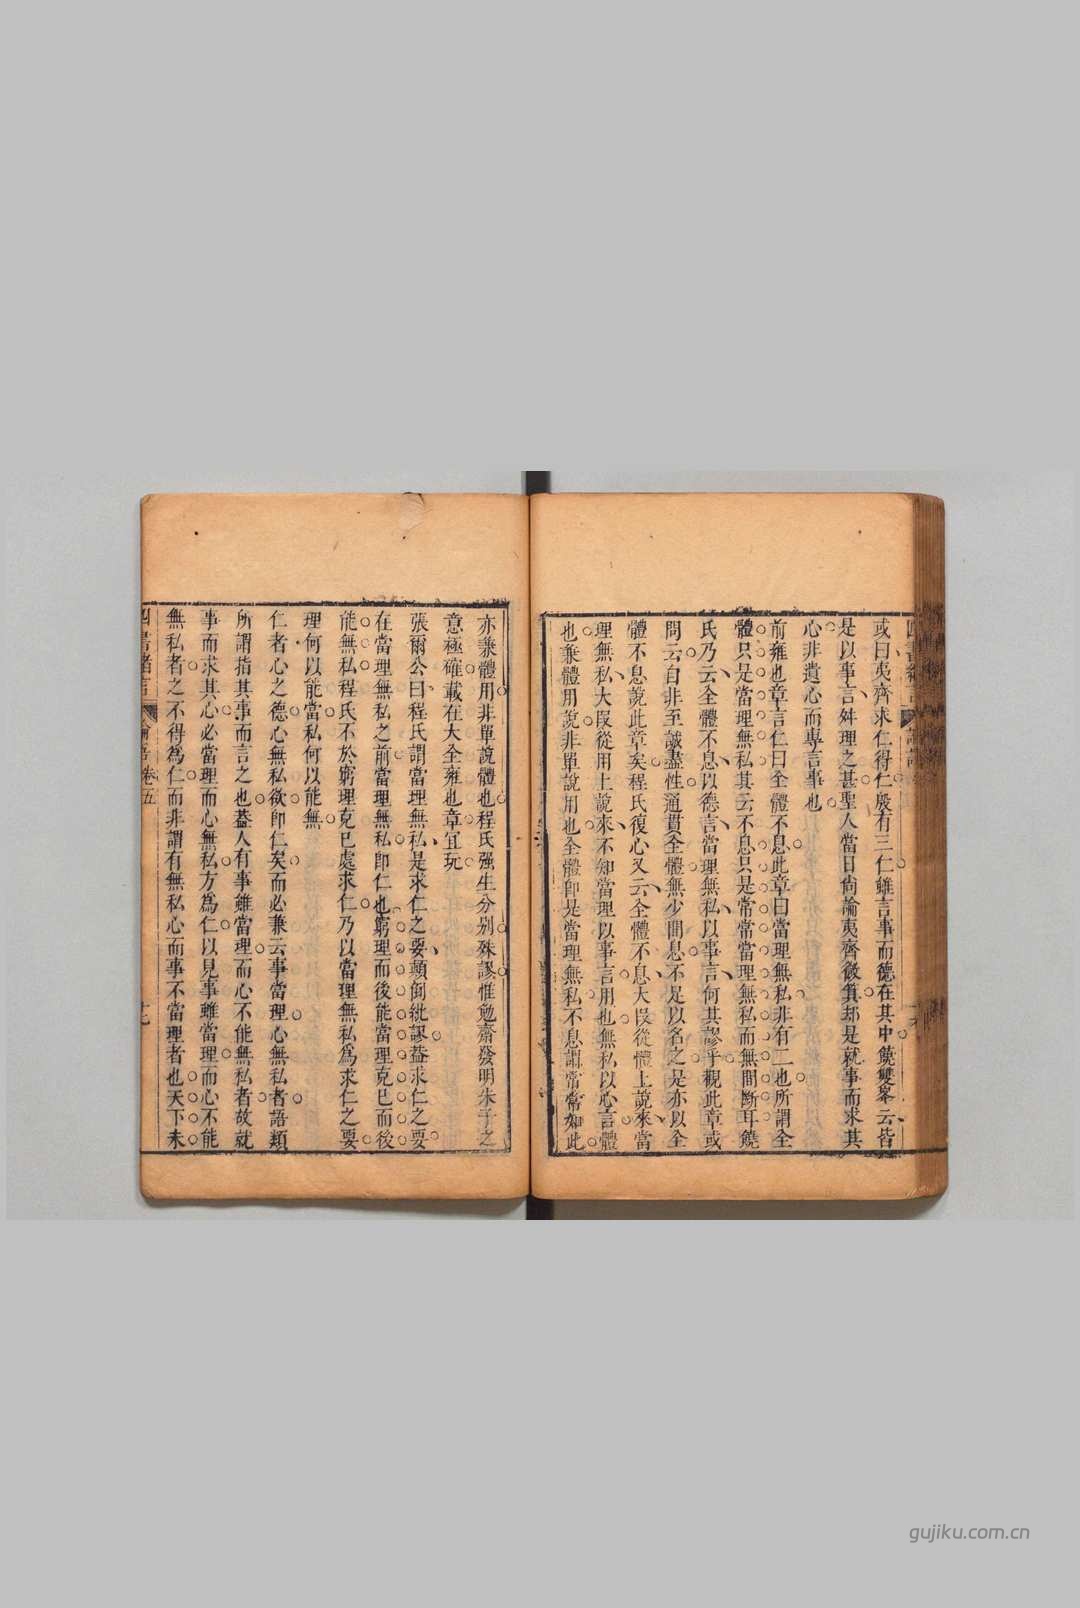 或曰夷齊求仁得仁殷有三仁雖言事而德在其中饒雙峯云皆
是以事言舛理之甚聖人當日尚論夷齊微箕却是就事而求其
心非遺心而專言事也
前雍也章言仁曰全體不息此章曰當理無私非有二也所謂全
體只是當理無私其云不息只是常常當理無私而無間斷耳饒
氏乃云全體不息以德言當理無私以事言何其謬乎觀此章或
問云自非至誠盡性通貫全體無少間息不足以名之是亦以全
體不息說此章矣程氏復心又云全體不息大叚從體上說來當
理無私大叚從用上說來不知當理以事言用也無私以心言體
也兼體用說非單說用也全體卽是當理無私不息謂常常如此
亦兼體用非單說體也程氏强生分别殊謬惟勉齋發明朱子之
意極確載在大全雍也章宜玩
張爾公曰程氏謂當理無私是求仁之要顛倒紕謬葢求仁之要
在當理無私之前當理無私卽仁也窮理而後能當理克已而後
能無私程氏不於窮理克已處求仁乃以當理無私爲求仁之要
理何以能當私何以能無
仁者心之德心無私欲卽仁矣而必兼云事當理心無私者語類
所謂指其事而言之也葢人有事雖當理而心不能無私者故就
事而求其心必當理而心無私方爲仁以見事雖當理而心不能
無私者之不得爲仁而非謂有無私心而事不當理者也天下未
四書諸言 論語卷五 十七